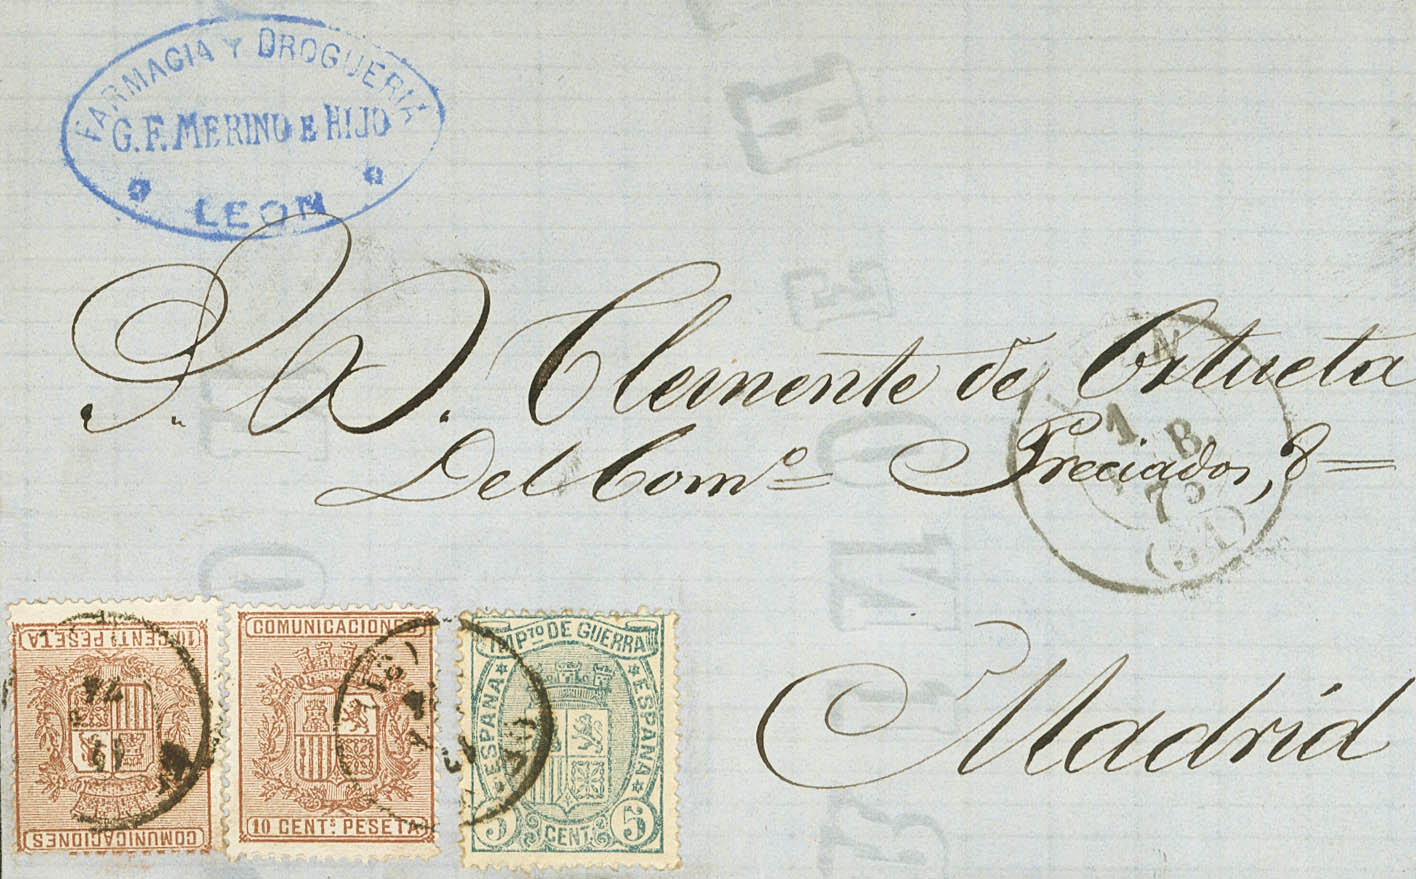 FARMACIA Y DROGUERIA
G. F. MERINO E HIJO
LEON
S. D. Clemente de Ortueta
Del Comº Preciados, 8
Madrid
LEON
1
75
(31)
10 CENT.S PESETA
COMUNICACIONES
COMUNICACIONES
10 CENT.S PESETA
IMP.TO DE GUERRA
ESPAÑA
ESPAÑA
5 CENT. 5